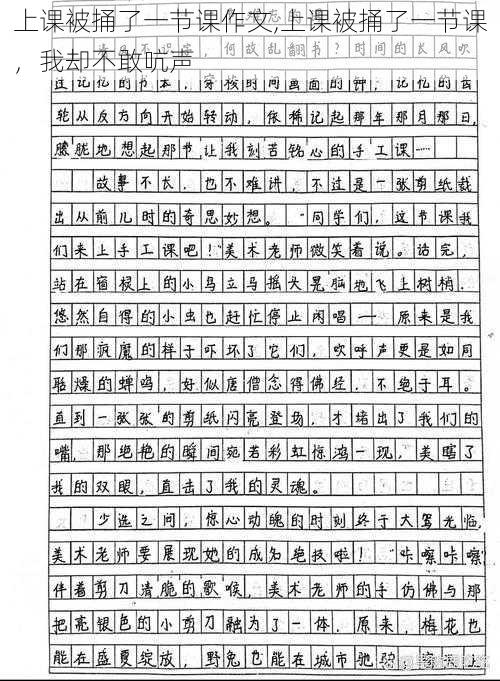 上课被捅了一节课作文,上课被捅了一节课
，我却不敢吭声
何故乱翻书？时间的长风吹
过记忆的书本，穿梭时间画面的钟，记忆的齿
轮从反方向开始转动，依稀记起那年那月那日，
朦胧地想起那节让我刻苦铭心的手工课……
故事不长，也不难讲，不过是一张剪纸裁
出从前儿时的奇思妙想。“同学们，这节课我
们来上手工课吧！”美术老师微笑着说。话完，
站在窗棂上的小鸟立马摇头晃脑地飞上树梢，
悠然自得的小虫也赶忙停止闲唱——原来是我
们那疯魔的样子吓坏了它们，欢呼声更是如同
聒燥的蝉鸣，好似唐僧念得佛经，不绝于耳。
直到一张张的剪纸闪亮登场，才堵出了我们的
嘴，那绝艳的瞬间宛若彩虹惊鸿一现，美瞎了
我的双眼，直击了我的灵魂。
少选之间，惊心动魄的时刻终于大驾光临，
美术老师要展现她的成名绝技啦！“咔嚓咔嚓”
伴着剪刀清脆的歌喉，美术老师的手仿佛与那
把亮银色的小剪刀融为了一体，原来，梅花也
能在盛夏绽放，野兔也能在城市驰